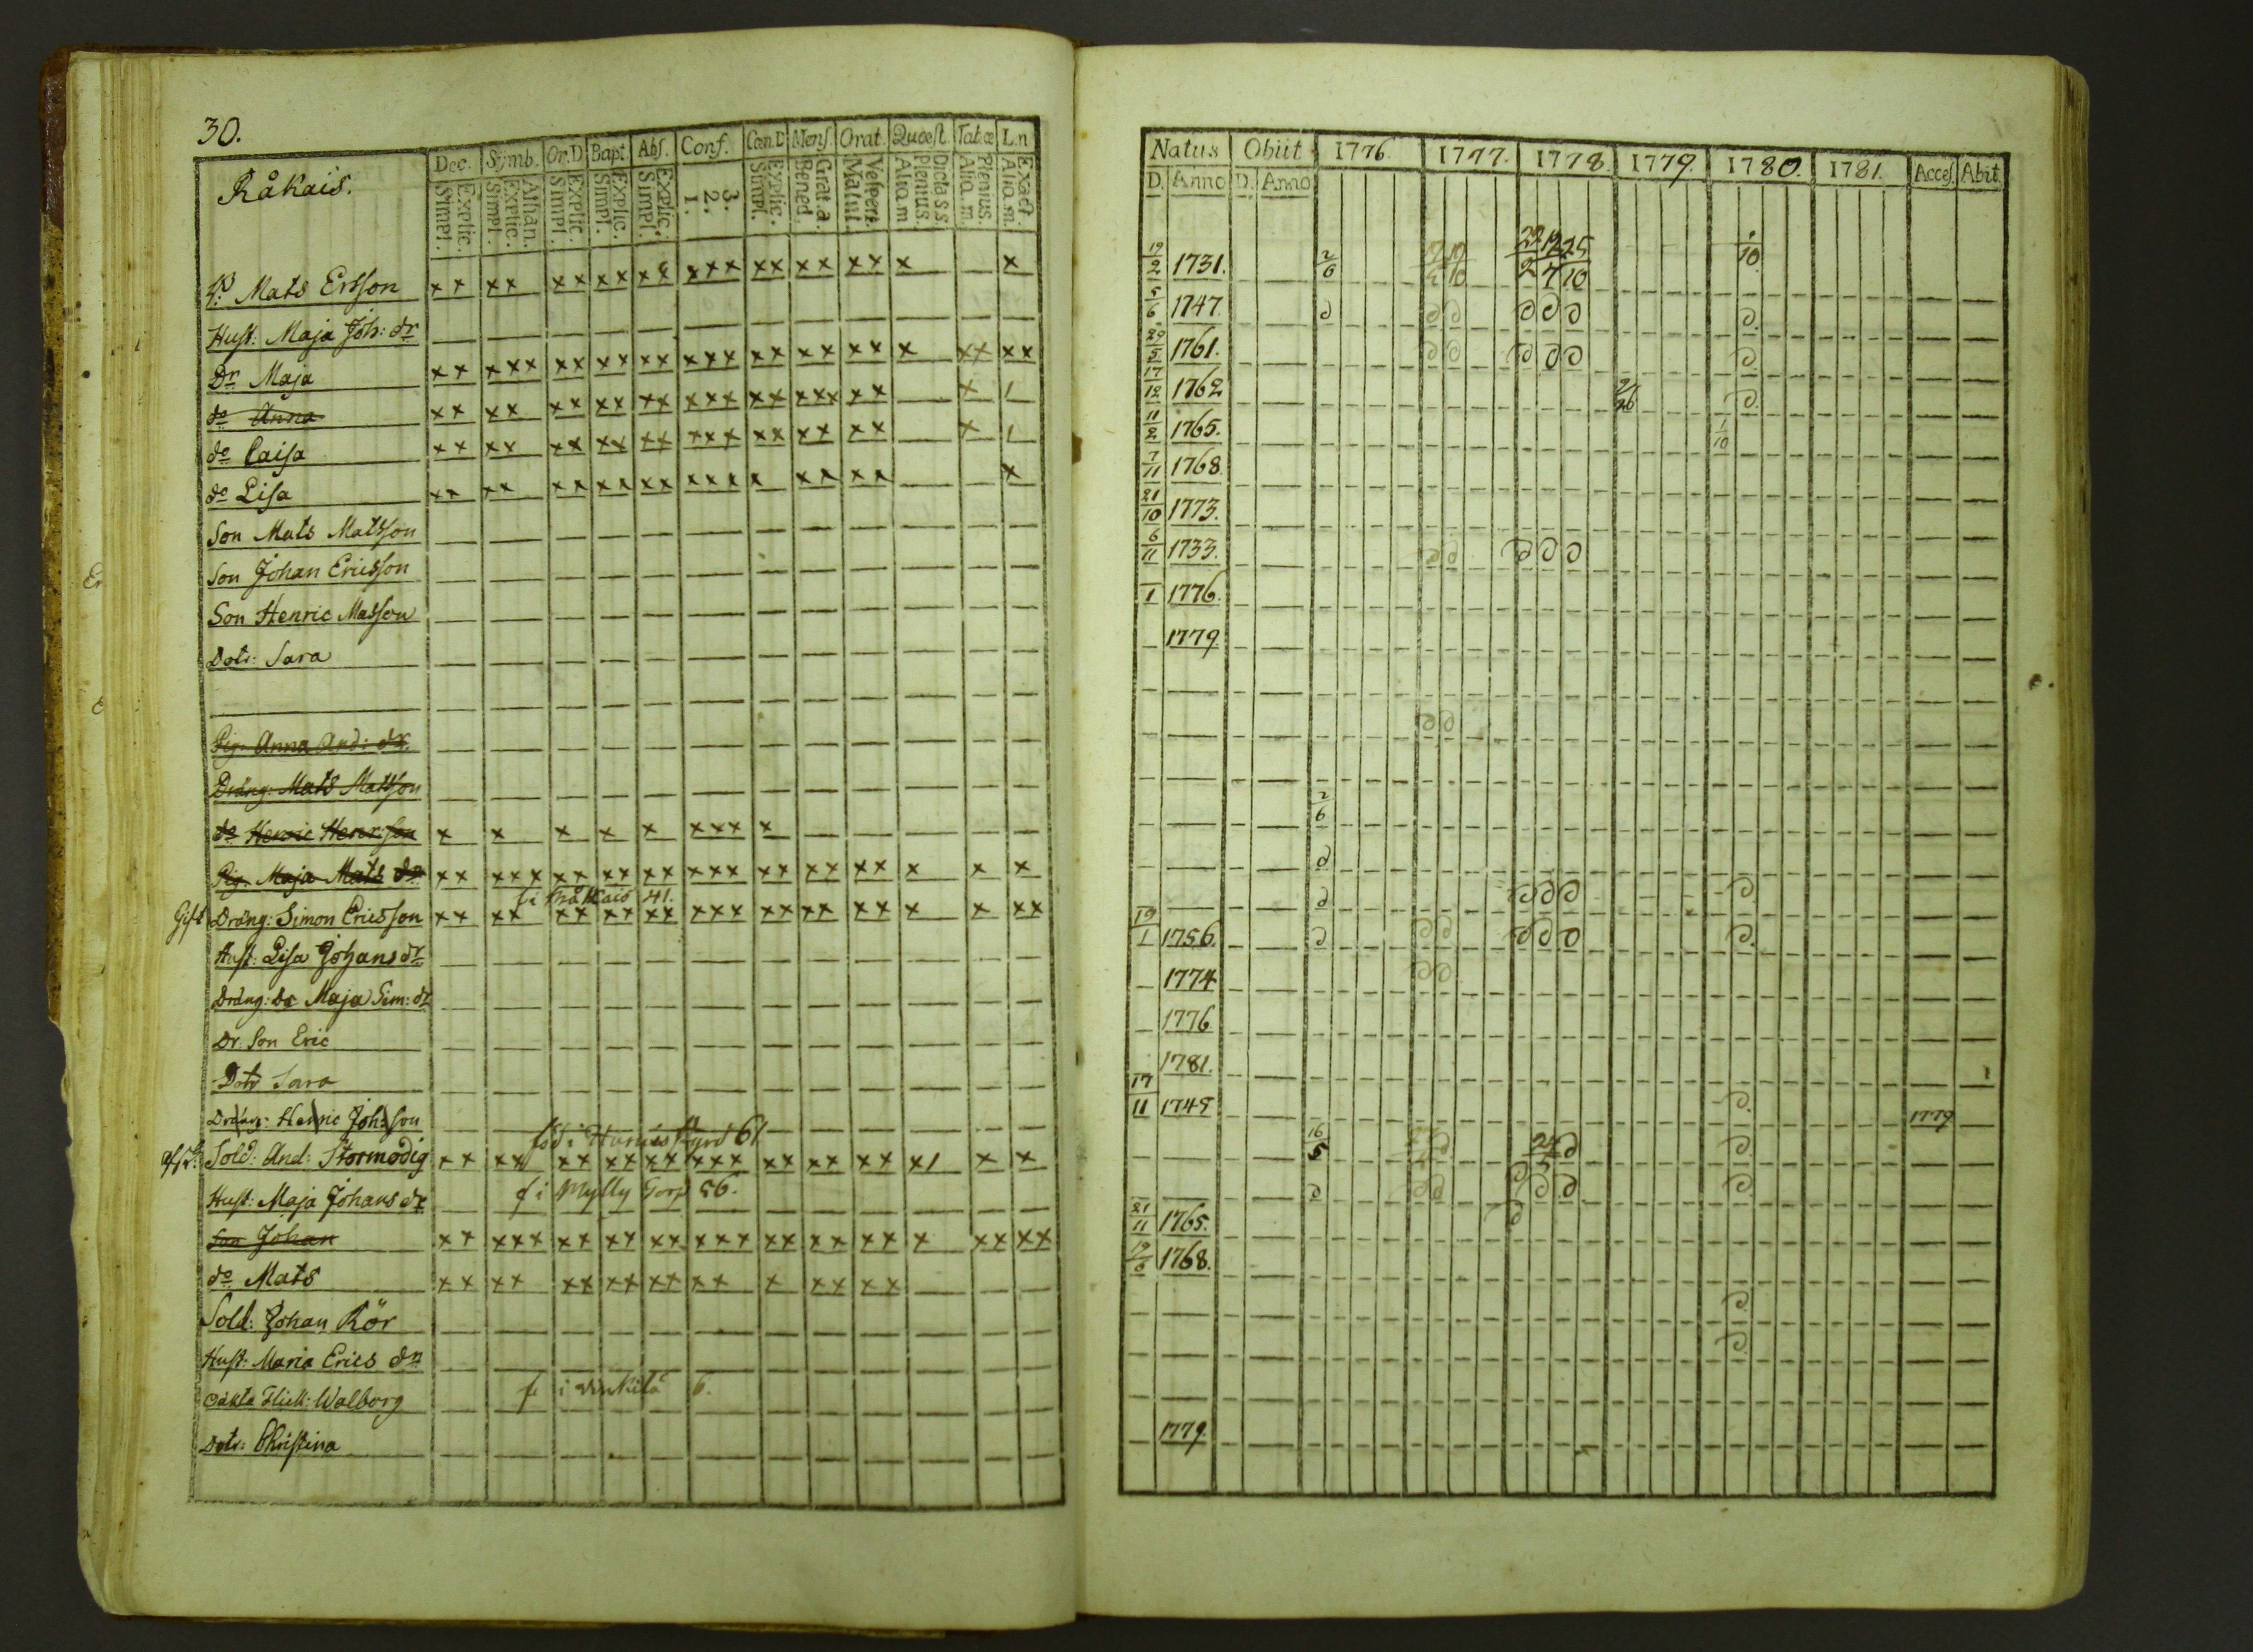 30.
Råkais.
Dec. Sijmb. Or.D Bapt. Abs. Conf. Cœn.D Mens. Orat. Quæst. Tabœ L.n
Explic. Simpl. Athan. Explic. Simpl. Explic. Simpl. Explic. Simpl. Explic. Simpl. 3. 2. 1. Explic. Simpl. Grat.a. Bened. Vespert. Matut. Dicta s s. Plenius. Aliq.m Plenius. Aliq.m. Exact. Aliq.m.
Mats Ersson x x x x x x x x x x x x x x x x x x x x x x
Hust: Maja Joh: dr
Dr Maja x x x x x x x x x x x x x x x x x x x x x x x x x x
do Anna x x x x x x x x x x x x x x x x x x x x x x 1
do Caisa x x x x x x x x x x x x x x x x x x x x 1
do Lisa x x x x x x x x x x x x x x x x x x x
Son Mats Matsson
Son Johan Ericsson
Son Henric Matsson
Dotr: Sara
Pig. Anna And: dr
Dräng: Mats Matsson
do Henric Henr:son x x x x x x x x x
Pig. Maja Mats dr x x x x x x x x x x x x x x x x x x x x x x x x
41.
Gift Dräng: Simon Ericsson x x x x x x x x x x x x x x x x x x x x x x x x
Hust: Lisa Johans dr
Dräng: Dr Maja Sim: dr
Dr: Son Eric
Dotr Sara
Dräng: Henric Joh:son
född i 61
Sold: And: Stormodig x x x x x x x x x x x x x x x x x x x x x 1 x x
f i Mylly Torp 56.
Hust: Maja Johans dr
Son Johan x x x x x x x x x x x x x x x x x x x x x x x x x x
do Mats x x x x x x x x x x x x x x x x x
Sold: Johan Rör
Hust: Maria Erics dr
f i 6.
oäkta Flick: Walborg
Dotr: Christina
Natus Obiit 1776. 1777. 1778. 1779. 1780. 1781. Acces. Abit.
D. Anno D. Anno
19/2 1731. 2/6 10
5/6 1747.
29/5 1761.
17/12 1762
11/2 1765. 1/10
7/11 1768.
21/10 1773.
6/11 1733.
1 1776.
1779.
2/6
19/1 1756.
1774
1776
1781.
17/11 1745 1779
16/5
21/11 1765.
19/6 1768.
1779.